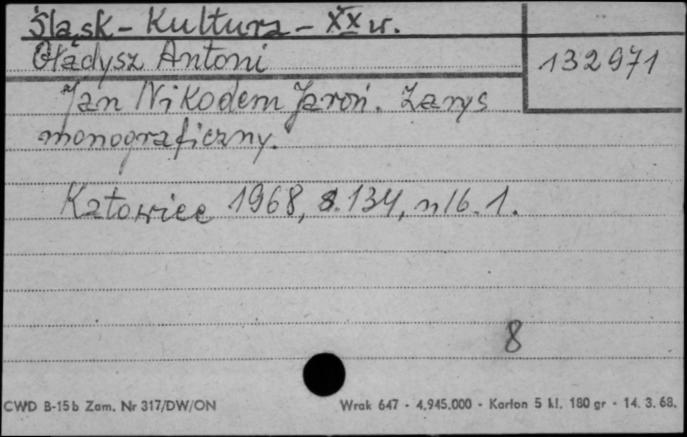 Śląsk - Kultura - XX w.
Gładysz Antoni
132971
Jan Nikodem Jaroń. Zarys
monograficzny.
Katowice 1968, s. 134, nlb. 1.
8
CWD B-15b Zam. Nr 317/DW/ON
Wrak 647 - 4.945.000 - Karton 5 kl. 180 gr - 14. 3. 68.